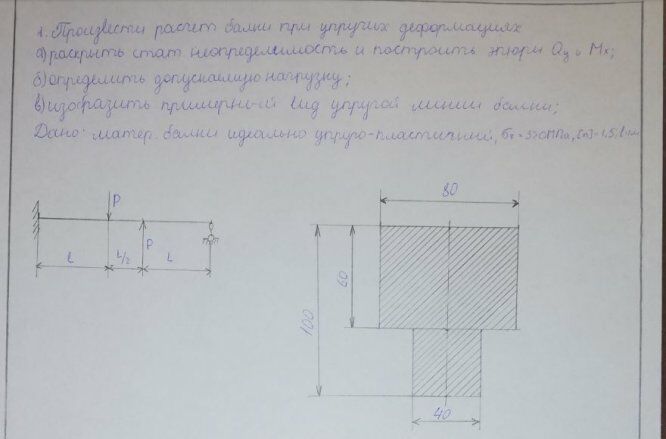 1. Произвести расчет балки при упругих деформациях
а) раскрыть стат. неопределимость и построить эпюры Qy и Mx;
б) определить допускаемую нагрузку;
в) изобразить примерный вид упругой линии балки;
Дано: матер. балки идеально упруго-пластичный, σт = 320МПа, [n]=1,5, l=1м
80
P
P
l
L/2
L
60
100
40